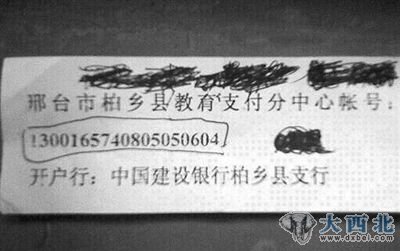 邢台市柏乡县教育支付分中心帐号：
1300165740805050604
开户行：中国建设银行柏乡县支行
大西北
www.dxbei.com